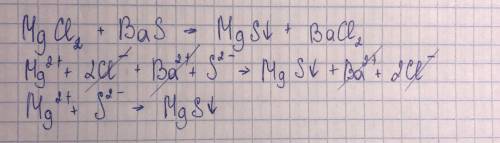 MgCl₂ + BaS → MgS↓ + BaCl₂
Mg²⁺ + 2Cl⁻ + Ba²⁺ + S²⁻ → MgS↓ + Ba²⁺ + 2Cl⁻
Mg²⁺ + S²⁻ → MgS↓